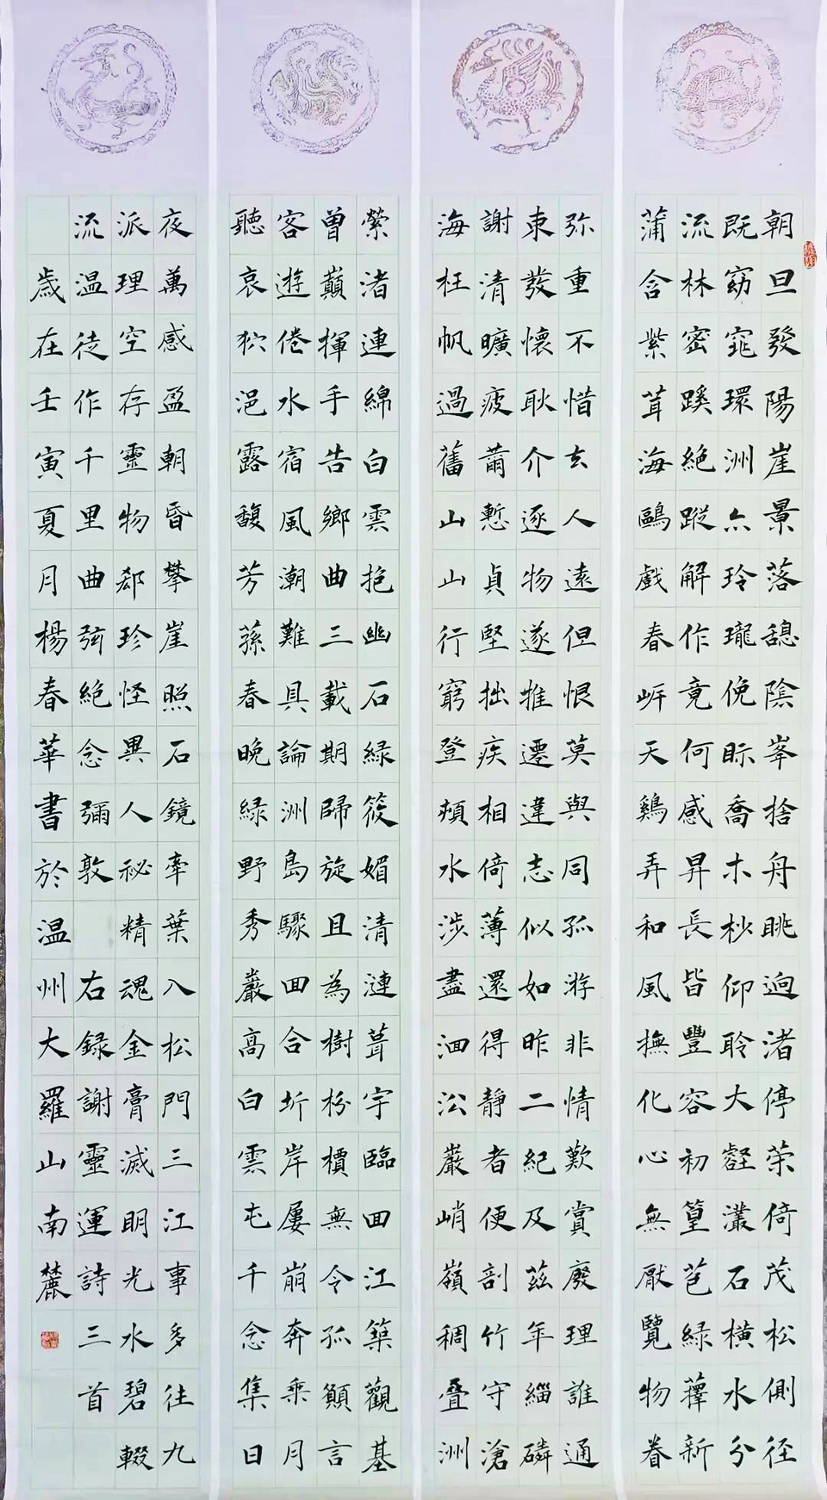 朝旦發陽崖景落憩陰峯捨舟眺迥渚停策倚茂松側徑
既窈窕環洲亦玲瓏俛眎喬木杪仰聆大壑灇石橫水分
流林密蹊絕蹤解作竟何感昇長皆豐容初篁苞綠籜新
蒲含紫茸海鷗戲春岸天鷄弄和風撫化心無厭覽物眷
弥重不惜去人遠但恨莫與同孤游非情歎賞廢理誰通
束發懷耿介逐物遂推遷違志似如昨二紀及茲年緇磷
謝清曠疲薾慙貞堅拙疾相倚薄還得靜者便剖竹守滄
海枉帆過舊山山行窮登頓水涉盡洄沿巖峭嶺稠疊洲
縈渚連綿白雲抱幽石綠筱媚清漣葺宇臨回江築觀基
曾巔揮手告鄉曲三載期歸旋且為樹枌檟無令孤願言
客遊倦水宿風潮難具論洲島驟回合圻岸屢崩奔乘月
聽哀狖浥露馥芳蓀春晚綠野秀巖高白雲屯千念集日
夜萬感盈朝昏攀崖照石鏡牽葉入松門三江事多往九
派理空存靈物郄珍怪異人祕精魂金膏滅明光水碧輟
流温徒作千里曲弦絕念彌敦 右錄謝靈運詩三首
歲在壬寅夏月楊春華書於温州大羅山南麓